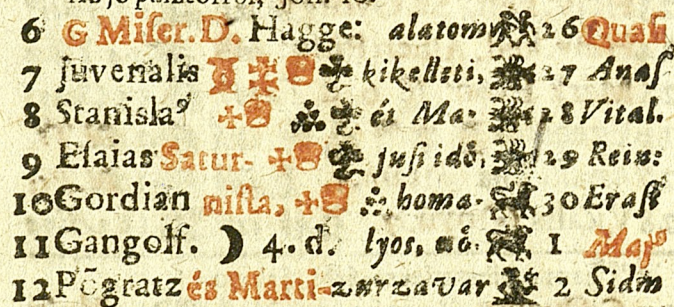 6 G Miser. D. Hagge: alatom 26 Quasi
7 Juvenalis kikelleti, 27 Anas
8 Stanisla⁹ és Ma- 28 Vital.
9 Esaias Satur- jusi idő, 29 Rein:
10 Gordian nista, homa- 30 Erast
11 Gangolf. ☽ 4. d. lyos, 1 Maj⁹
12 Põgratz és Marti- zurzavar 2 Sidm